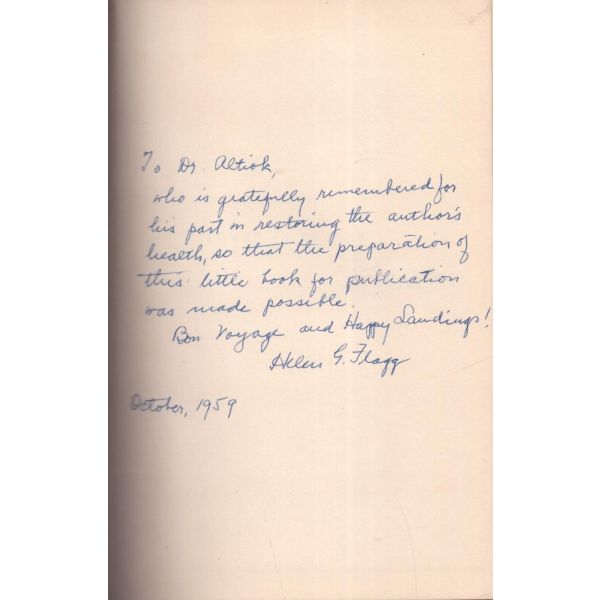 To Dr. Altiok,
who is gratefully remembered for
his part in restoring the author's
health, so that the preparation of
this little book for publication
was made possible.
Bon Voyage and Happy Landings!
Helen G. Flagg
October, 1959